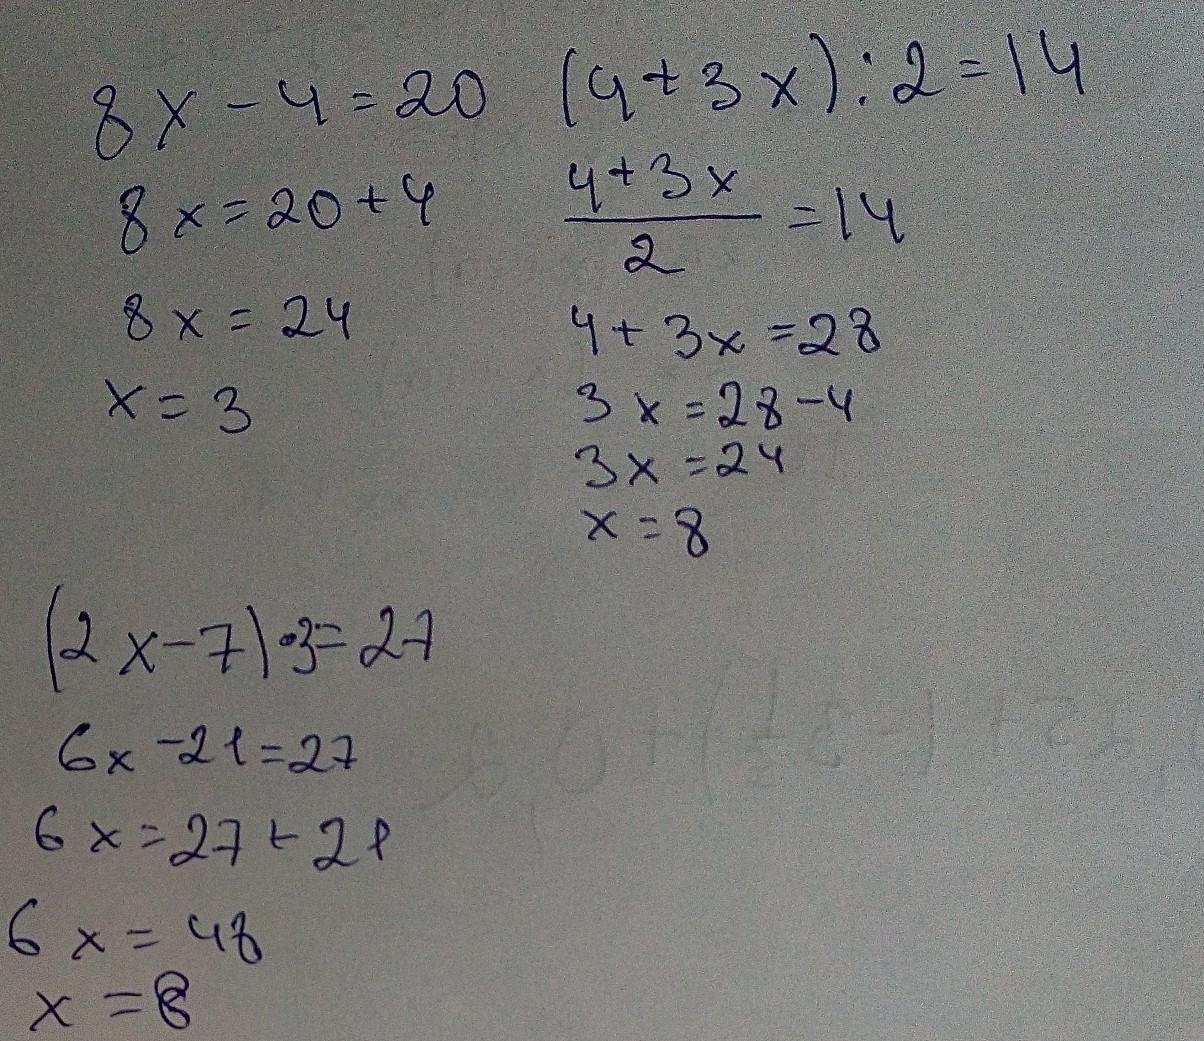 8x-4=20
8x=20+4
8x=24
x=3
(4+3x):2=14
4+3x
2
=14
4+3x=28
3x=28-4
3x=24
x=8
(2x-7)·3=27
6x-21=27
6x=27+21
6x=48
x=8